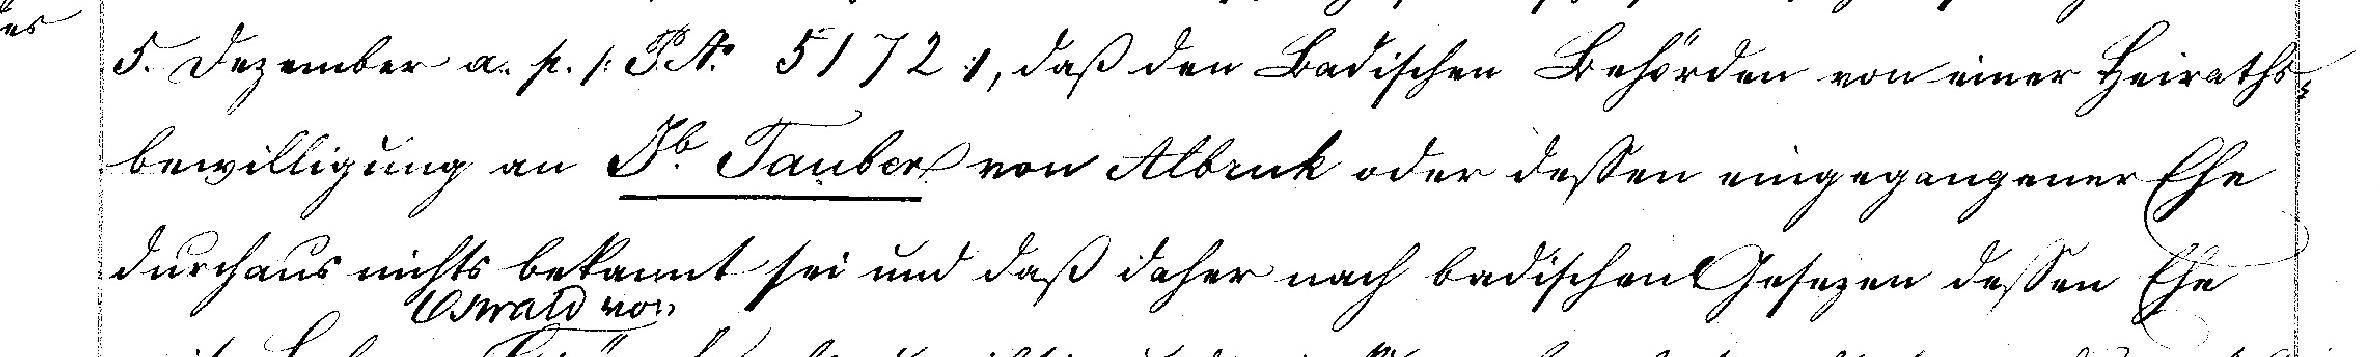 5. Dezember a. p. /: P. No 5172 :/, daß den Badischen Behörden von einer Heiraths-
bewilligung an Jb. Tauber von Albruk oder dessen eingegangener Ehe
durchaus nichts bekannt sei und daß daher nach badischen Gesezen dessen Ehe
Oswald von